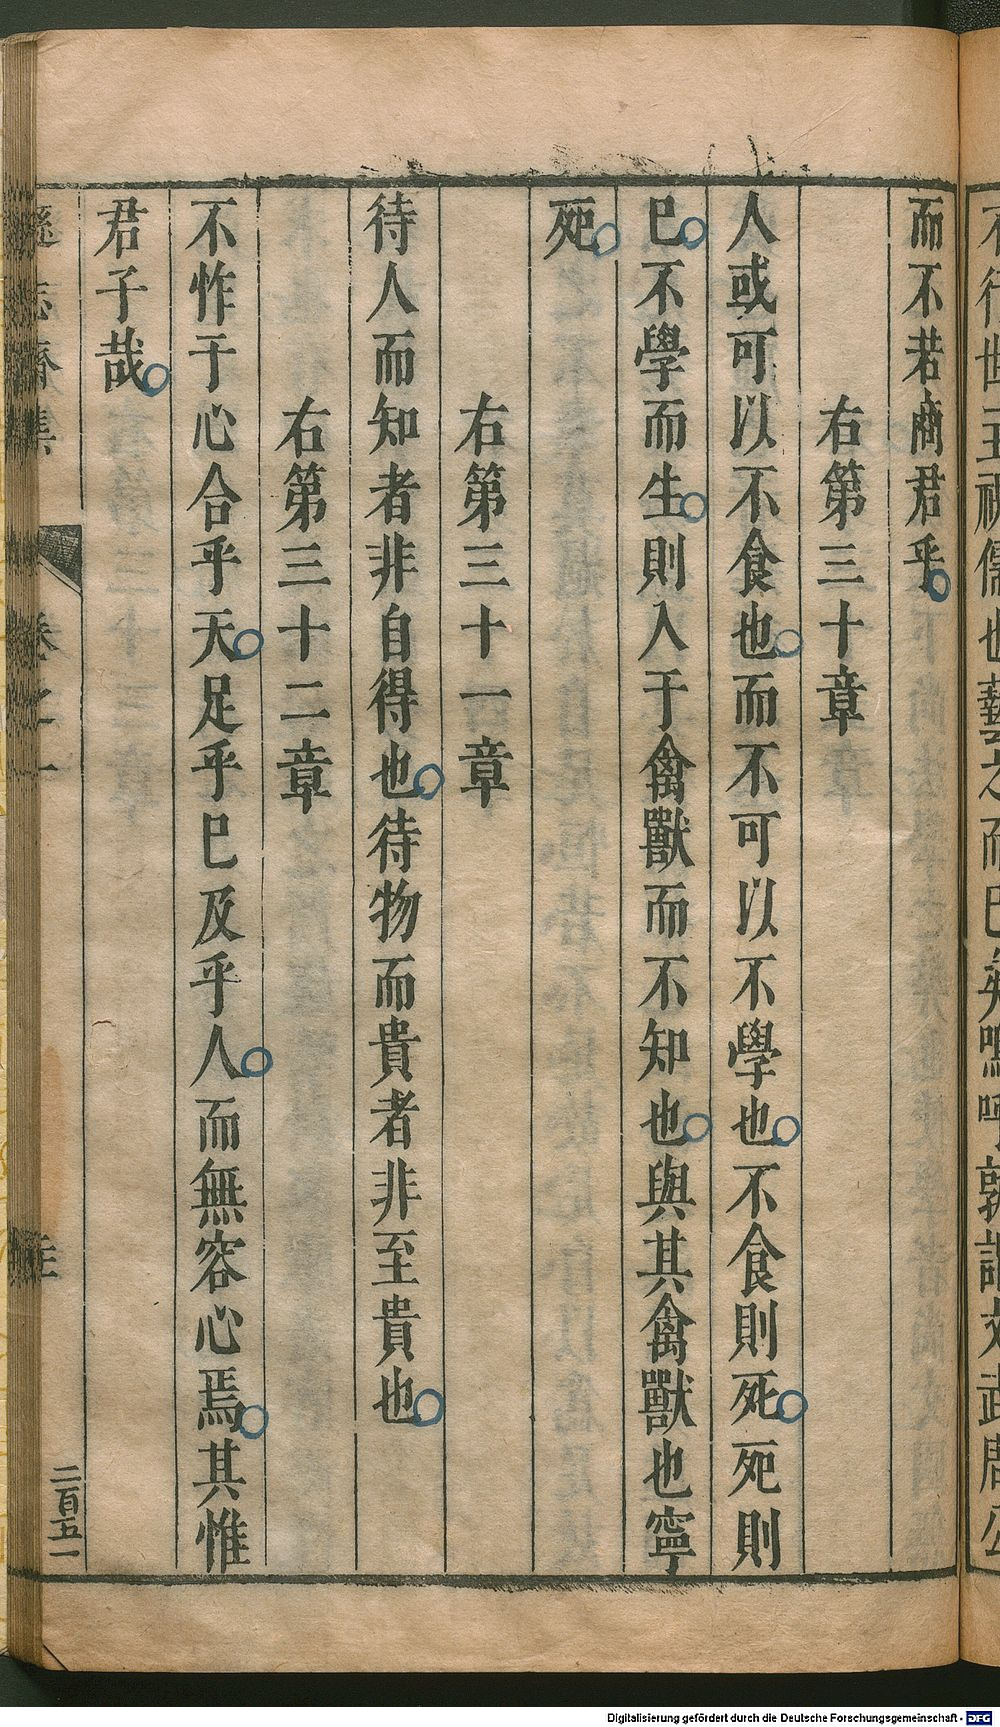 而不若商君乎
右第三十章
人或可以不食也而不可以不學也不食則死死則
已不學而生則入于禽獸而不知也與其禽獸也寧
死
右第三十一章
待人而知者非自得也待物而貴者非至貴也
右第三十二章
不怍于心合乎天足乎已及乎人而無容心焉其惟
君子哉
遜志齋集 卷之一
二百五一
Digitalisierung gefördert durch die Deutsche Forschungsgemeinschaft - DFG